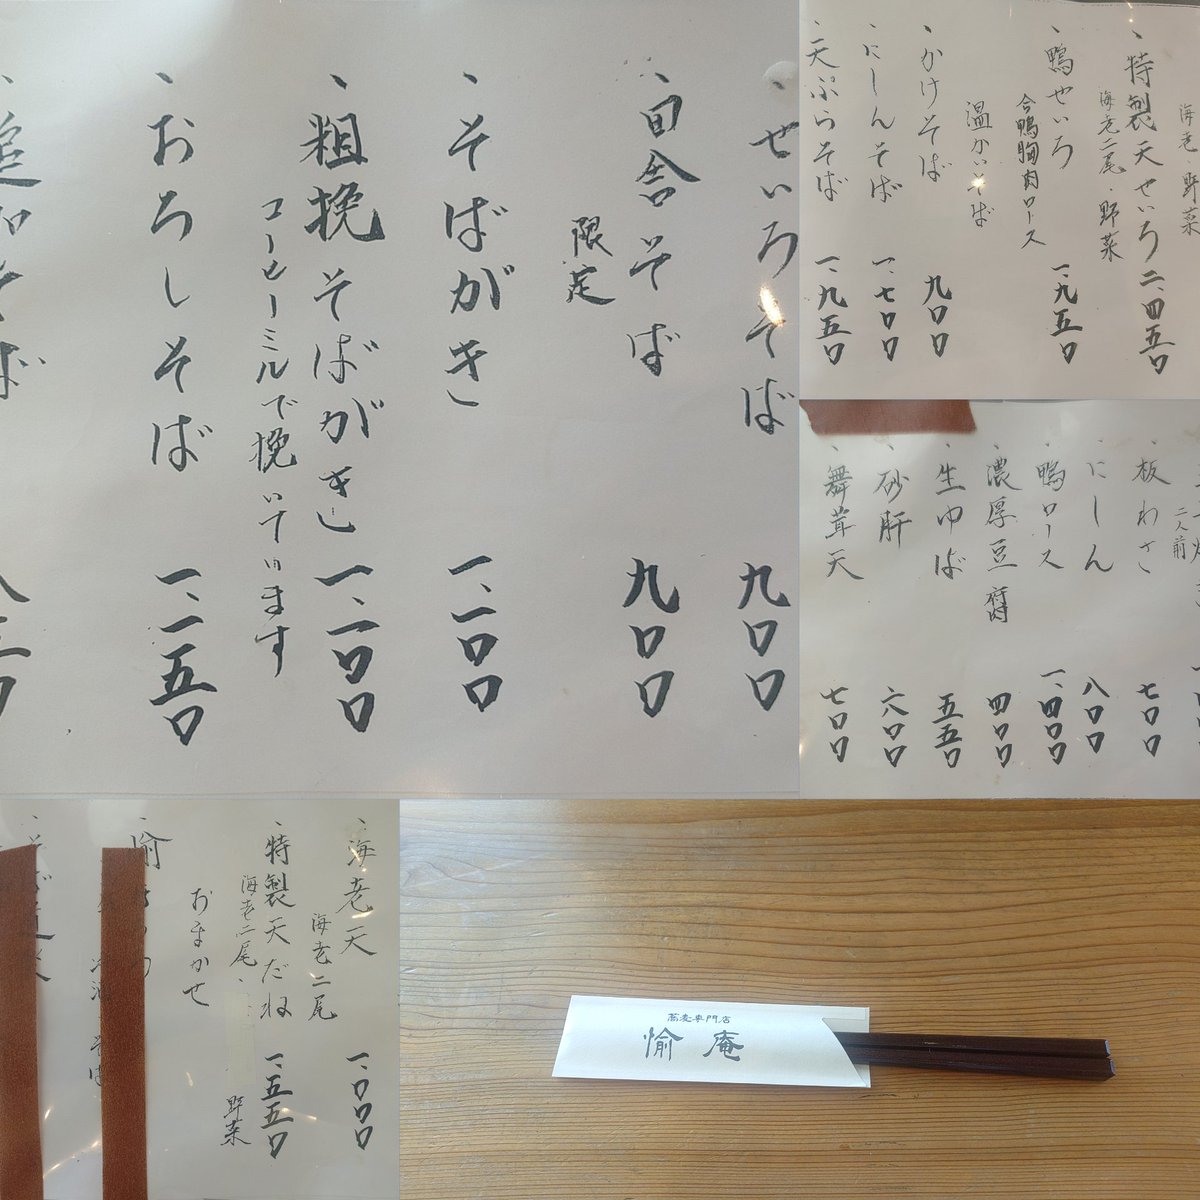 、せいろそば 九〇〇
、田舎そば 九〇〇
限定
、そばがき 一、一〇〇
、粗挽そばがき 一、一〇〇
コーヒーミルで挽いています
、おろしそば 一、一五〇
海老・野菜
、特製天せいろ 二、四五〇
海老二尾・野菜
、鴨せいろ 一、九五〇
合鴨胸肉ロース
温かいそば
、かけそば 九〇〇
、にしんそば 一、七〇〇
、天ぷらそば 一、九五〇
二人前
、板わさ 七〇〇
、にしん 八〇〇
、鴨ロース 一、四〇〇
、濃厚豆腐 四〇〇
、生ゆば 五五〇
、砂肝 六〇〇
、舞茸天 七〇〇
、海老天 一、〇〇〇
海老二尾
、特製天だね 一、五五〇
海老二尾・
野菜
おまかせ
蕎麦専門店
愉庵